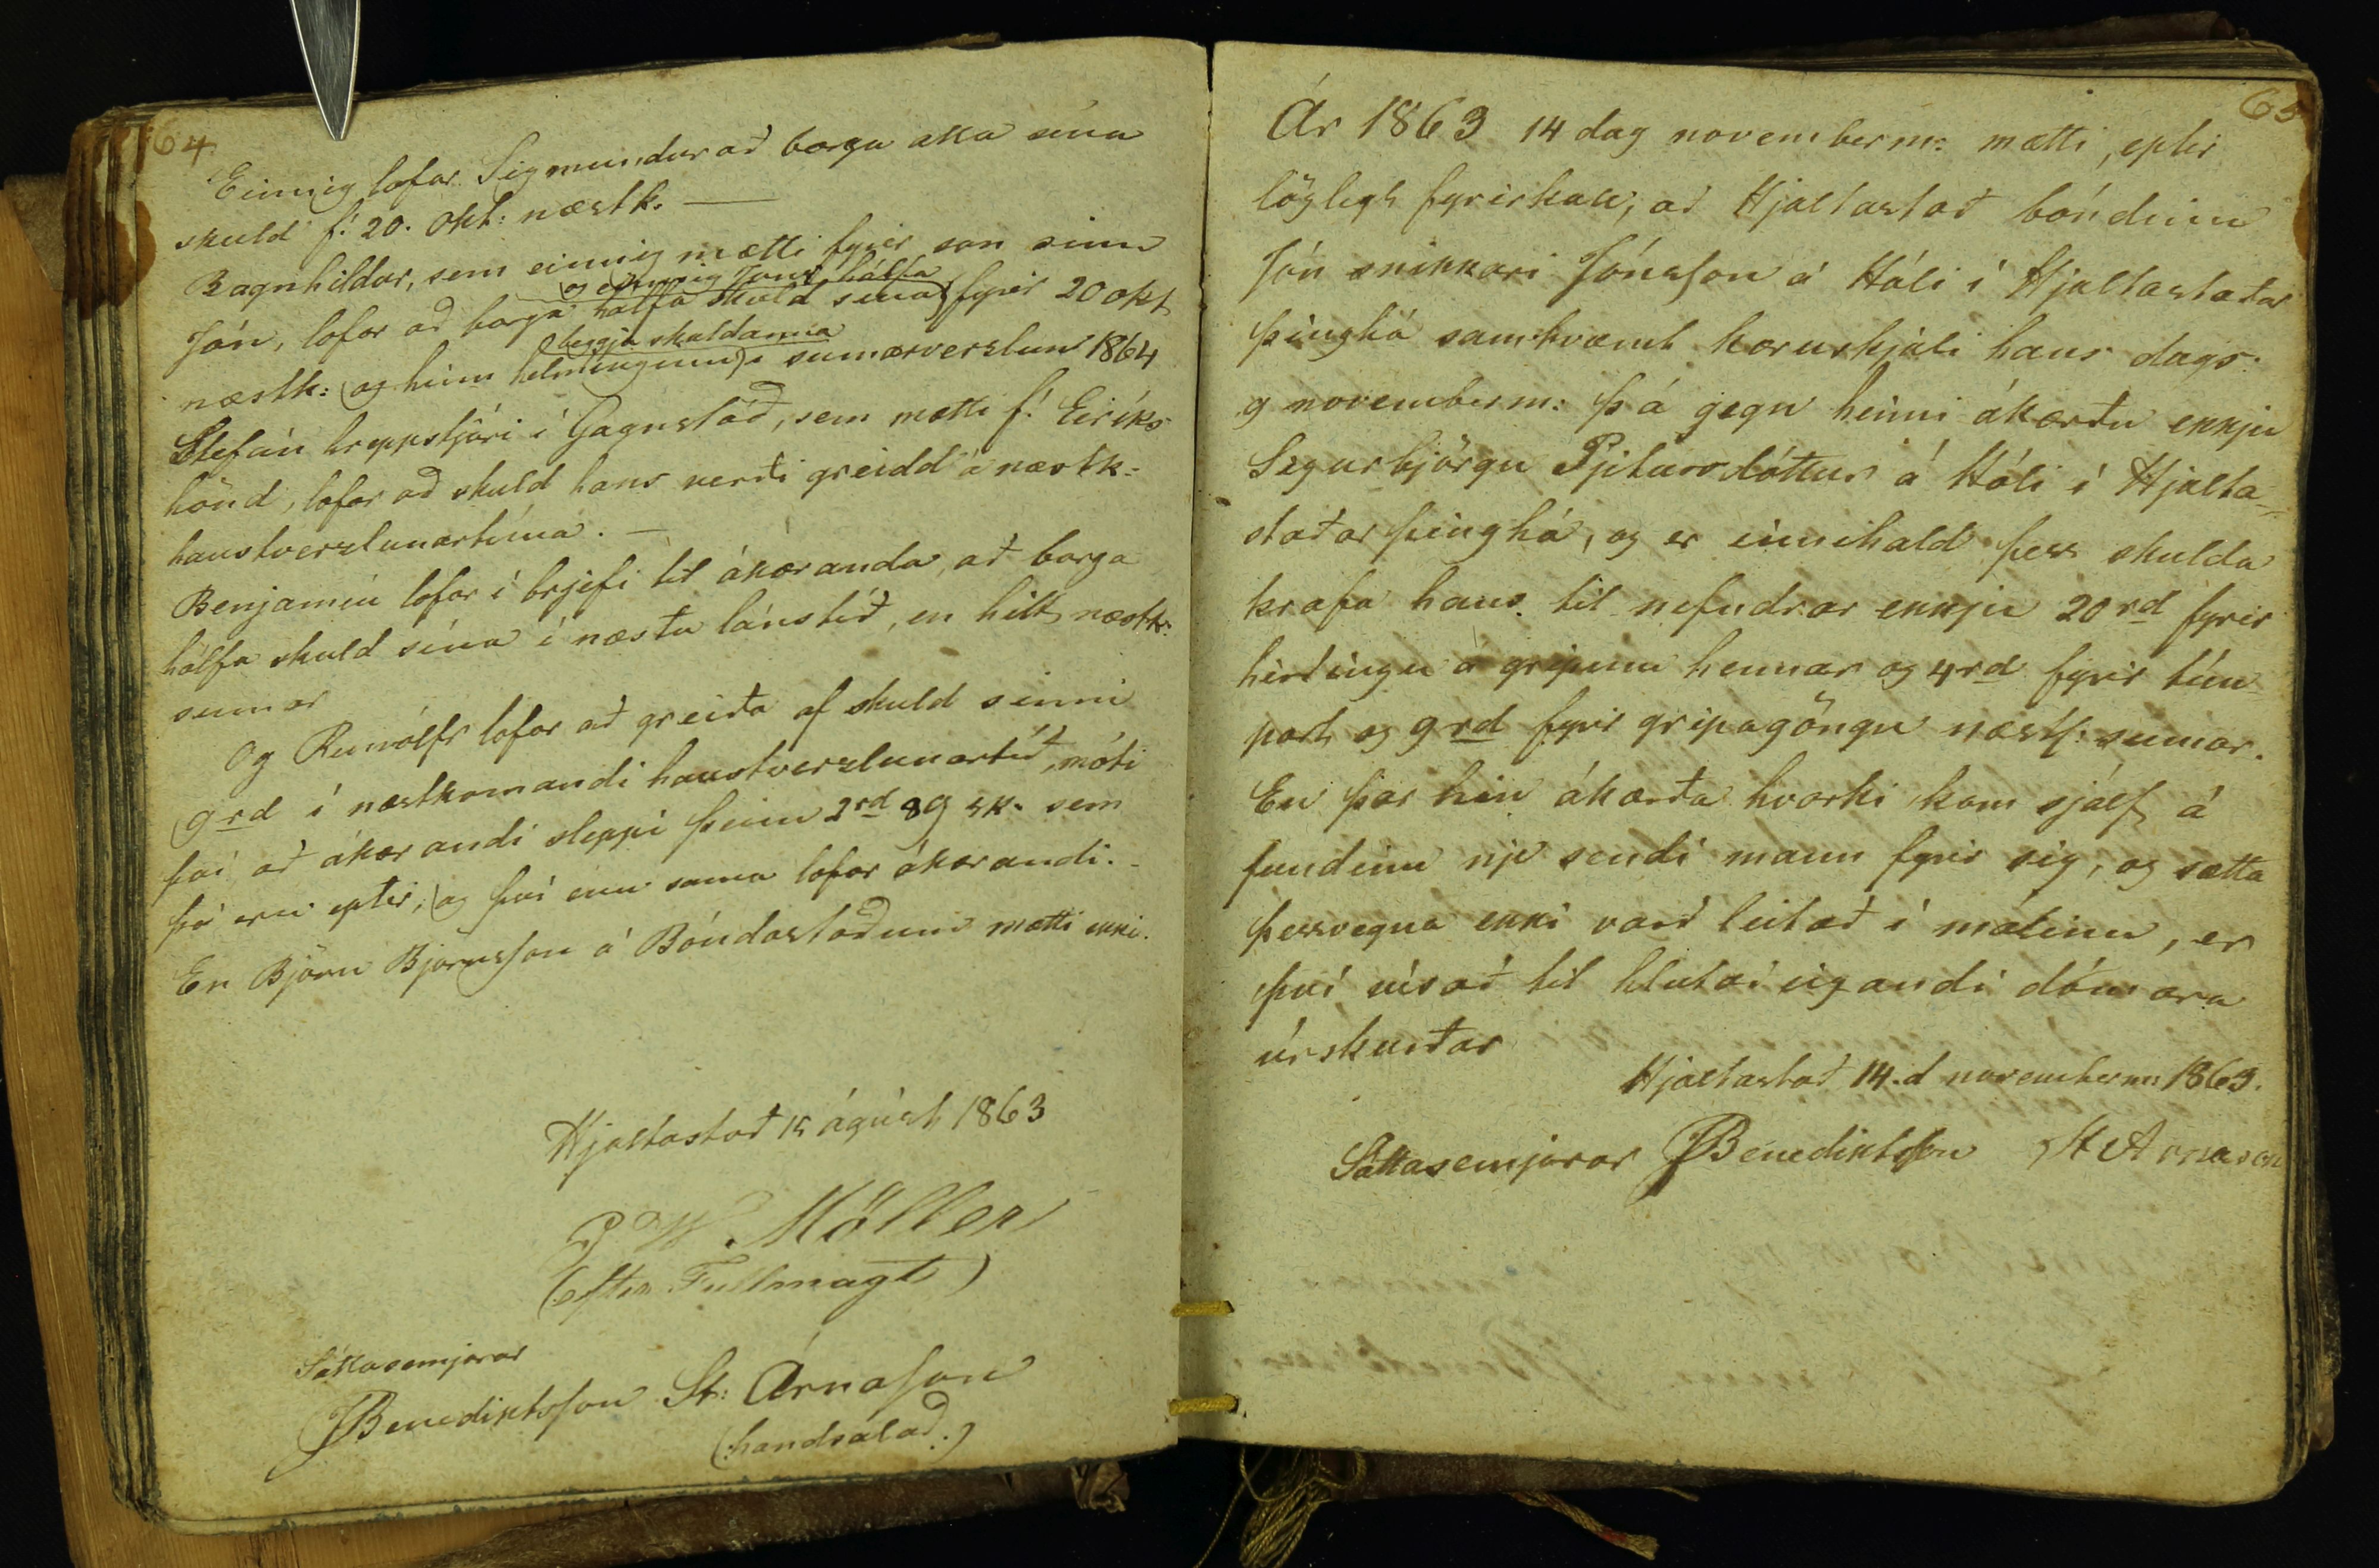 64
Einnig lofar Sigmundur að borga alla sína
skuld f: 20. okt: næstk. —
Ragnhildur, sem einnig mætti fyrir son sinn
og einnig Jóns hálfa
Jón, lofar að borga hálfa skuld sína fyrir 20 okt
beggja skuldanna
næstk: og hinn helminginn í sumarverzlun 1864
Stefán hreppstjóri í Gagnstöð, sem mætti f: Eiríks
hönd, lofar að skuld hans verði greidd á næstk:
haustverzlunartíma. —
Benjamín lofar í brjefi til ákæranda, að borga
hálfa skuld sína í næstu lánstíð, en hitt næstk:
sumar
Og Runólfr lofar að greiða af skuld sinni
9rd í næstkomandi haustverzlunartíð, móti
því að ákærandi sleppi þeim 2rd 89 sk. sem
þá eru eptir, og því enu sama lofar ákærandi. -
En Björn Björnsson á Bóndastöðum mætti ekki.
Hjaltastað 15 ágúst 1863
P W. Möller
(efter Fullmagt)
Sáttasemjarar
JBenediktsson St: Árnason
(handsalað.)
65
Ár 1863 14 dag november m: mætti, eptir
löglegt fyrirkall, að Hjaltastað bóndinn
Jón snikkari Jónsson á Hóli í Hjaltastaðar
þinghá samkvæmt kæruskjali hans dags:
9 november m: þ á gegn hinni ákærðu ekkju
Segurbjörgu Pjetursdóttur á Hóli í Hjalta-
staðarþinghá, og er innihald þess skulda
krafa hans til nefndrar ekkju 20rd fyrir
hirðingu á gripum hennar og 4rd fyrir tún
part og 9rd fyrir gripagöngu næstl: sumar.
En þar hin ákærða hvorki kom sjálf á
fundinn nje sendi mann fyrir sig, og sætta
þessvegna ekki varð leitað í málinu, er
því vísað til hlutaðeigandi dómara
úrskurðar
Hjaltastað 14. d november m: 1863.
Sáttasemjarar JBenediktsson St Arnason